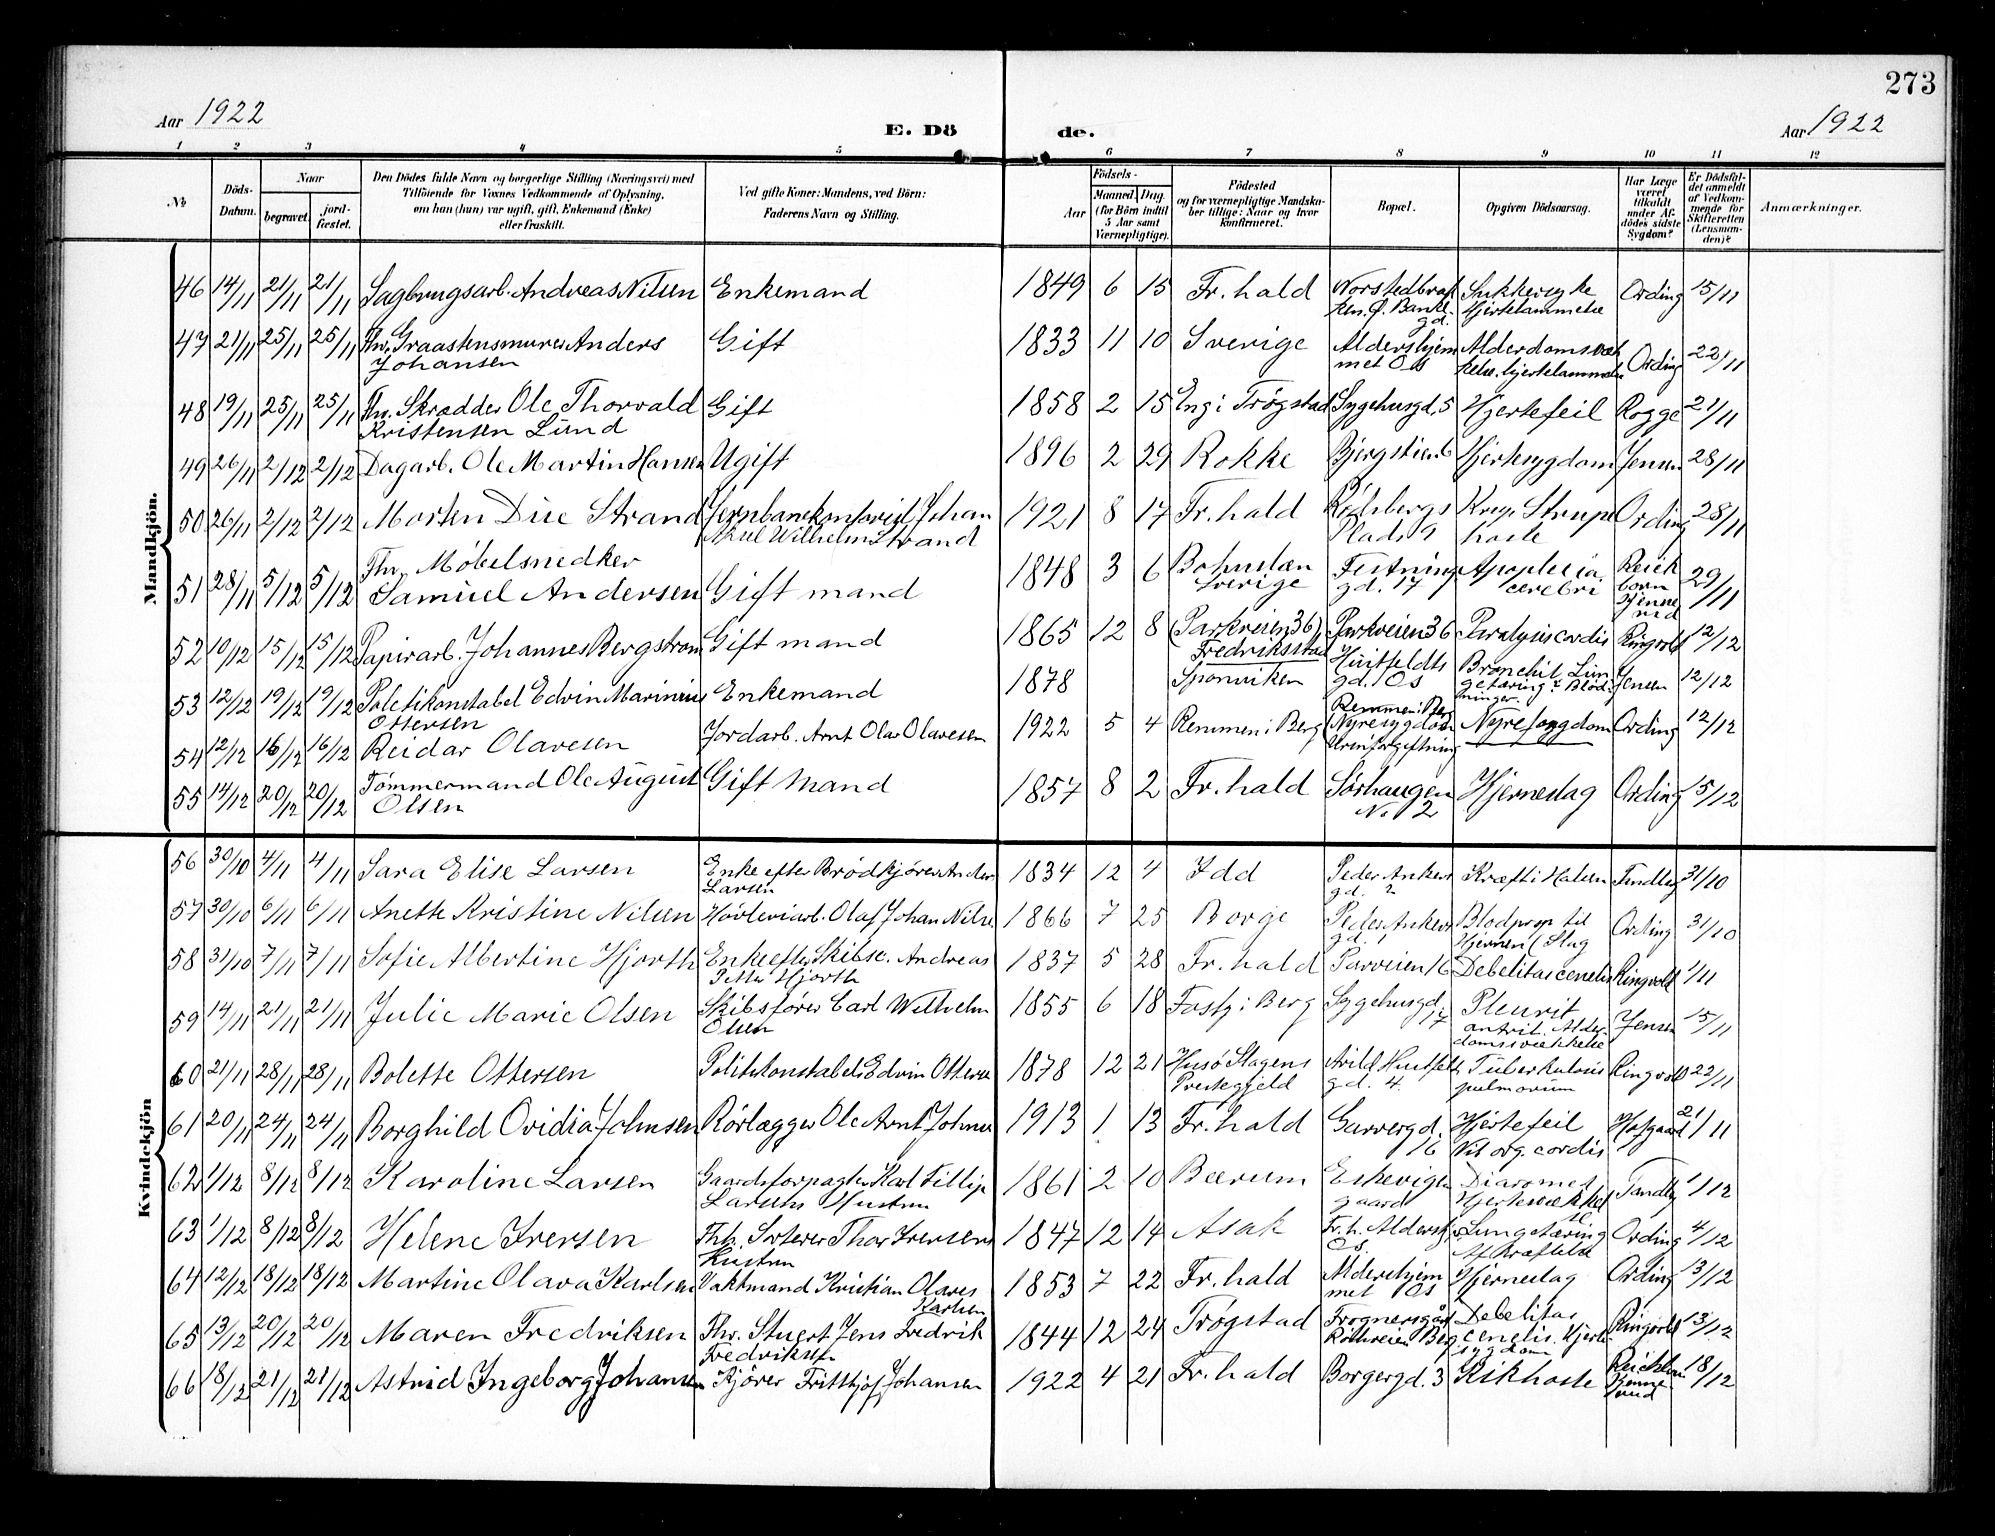 273
Aar 1922
E. Dö de.
Aar 1922
1 2 3 4 5 6 7 8 9 10 11 12
No.
Döds-Datum.
Naar
begravet.
jord-fæstet.
Den Dödes fulde Navn og borgerlige Stilling (Næringsvei) med
Tilföiende for Voxnes Vedkommende af Oplysning,
om han (hun) var ugift, gift, Enkemand (Enke)
eller fraskilt.
Ved gifte Koner: Mandens, ved Börn:
Faderens Navn og Stilling.
Födsels-
Aar
Maaned. Dag.
(for Börn indtil
5 Aar samt
Værnepligtige).
Födested
og for værnepligtige Mandska-
ber tillige: Naar og hvor
konfirmeret.
Bopæl.
Opgiven Dödsaarsag.
Har Læge
været
tilkaldt
under Af-
dödes sidste
Sygdom?
Er Dödsfal-
det anmeldt
af Vedkom-
mende for
Skifteretten
(Lensman-
den)?
Anmærkninger.
Mandkjön.
46 14/11 21/11 21/11 Sagbrugsarb. Andreas Nilsen Enkemand 1849 6 15 Fr.hald Ording 15/11
Sukkersyke
Hjertelammelse
47 21/11 25/11 25/11 Fhv. Graastensmurer Anders Gift 1833 11 10 Sverige Aldershjem Ording 22/11
Johansen met Os
48 19/11 25/11 25/11 Fhv. Skrædder Ole Thorvald Gift 1858 2 15 Eng i Trøgstad Sygehusgd. 5 Hjertefeil Rogge 21/11
Kristensen Lund
49 26/11 2/12 2/12 Dagarb. Ole Martin Hansen Ugift 1896 2 29 Rokke Bjergstien 6 Hjertesygdom Jensen 28/11
50 26/11 2/12 2/12 Morten Due Strand Jernbanekontorist Johan 1921 8 17 Fr.hald Ording 28/11
Wilhelm Strand Plads 9 hoste
Fhv. Møbelsnedker
51 28/11 5/12 5/12 Samuel Andersen Gift mand 1848 3 6 Bohuslæn Festnings Apoplexia 29/11
Sverige gd. 17 cerebri
52 10/12 15/12 15/12 Papirarb. Johannes Bergstrøm Gift mand 1865 12 8 (Parkveien 36) Parkveien 36 Paralysis cordis Ringvold 12/12
Fredriksstad
53 12/12 19/12 19/12 Poletikonstabel Edvin Marinius Enkemand 1878 Sponviken Huitfeldts Jensen 12/12
Ottersen gd. Os
54 12/12 16/12 16/12 Reidar Olavesen Jordarb. Arnt Olav Olavesen 1922 5 4 Remmen i Berg Remmen i Berg Nyresygdom Ording 12/12
(Nyresygdom
Urinforgiftning
55 14/12 20/12 20/12 Tømmermand Ole August Gift Mand 1857 8 2 Fr.hald Sørhaugen Hjerneslag Ording 15/12
Olsen No 2
Kvindekjön
56 30/10 4/11 4/11 Sara Elise Larsen Enke efter Brødkjører Anders 1834 12 4 Idd Peder Ankers Kræft i Halsen 31/10
Larsen gd. 2
57 30/10 6/11 6/11 Anette Kristine Nilsen Høvleriarb. Olaf Johan Nilse 1866 7 25 Borge Peder Ankers Blodprop til Ording 31/10
gd. 1 Hjernen (Slag
58 31/10 7/11 7/11 Sofie Albertine Hjorth Enke efter Skibsc. Andreas 1837 5 28 Fr.hald Parveien 16 Debelitas cenelis Ringvold 1/11
Petter Hjorth
59 14/11 21/11 21/11 Julie Marie Olsen Skibsfører Carl Wilhelm 1855 6 18 i Berg Sygehusgd. Pleurit Jensen 15/11
Olsen 7 Alder-
domssvækkelse
60 21/11 28/11 28/11 Bolette Ottersen Politikonstabel Edvin Otterse 1878 12 21 Husø Slagens Arild Huitfeldts Tuberkulosis Ringvold 22/11
Prestegjeld gd. 4. pulmorum
61 20/11 24/11 24/11 Borghild Ovidia Johnsen Rørlægger Ole Arnt Johnse 1913 1 13 Fr.hald Garvergd. Hjertefeil Hofgaard 21/11
16 Vit. org. cordis
62 1/12 8/12 8/12 Karoline Larsen Gaardsforpagter Karl Fillip 1861 2 10 Bærum Eskevigen 1/12
Larsens Hustru gaard
63 1/12 8/12 8/12 Helene Iversen Fhv. Sorterer Thor Iversens 1847 12 14 Asak Fr.h. Aldershj. Lungetæring Ording 4/12
Hustru Os. Afkræftelse
64 12/12 18/12 18/12 Martine Olava Karlsen Vaktmand Kristian Olaves 1853 7 22 Fr.hald Aldershjem Hjerneslag Ording 13/12
Karlsen met Os
65 13/12 20/12 20/12 Maren Fredriksen Fhv. Stuert Jens Fredrik 1844 12 24 Trøgstad Debelitas Ringvold 13/12
Fredriksen cenelis. Hjerte-
sygdom
66 18/12 21/12 21/12 Astrid Ingeborg Johansen Kjører Frithjof Johansen 1922 4 21 Fr.hald Borgergd. 3 Kikhoste 18/12